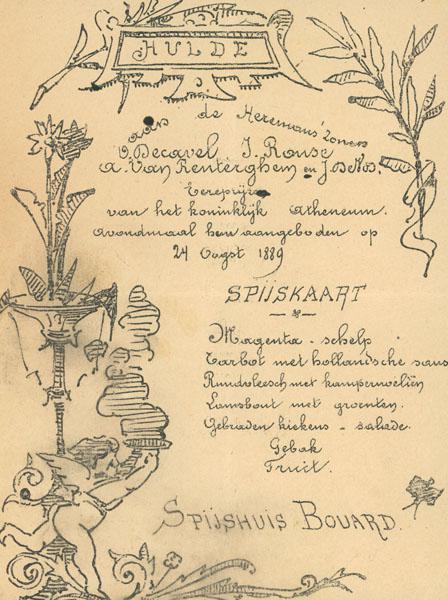 HULDE
aan de Heremans' Zonen
O. Decavel J. Rouse
A. Van Renterghem en J. De Vos.
Eereprijzen
van het koninklijk Atheneum.
avondmaal hun aangeboden op
24 Oogst 1889
SPIJSKAART
Magenta-schelp
Tarbot met hollandsche saus
Rundvleesch met kampernoeliën
Lamsbout met groenten.
Gebraden kiekens - salade.
Gebak
Fruit.
SPIJSHUIS BOUARD.